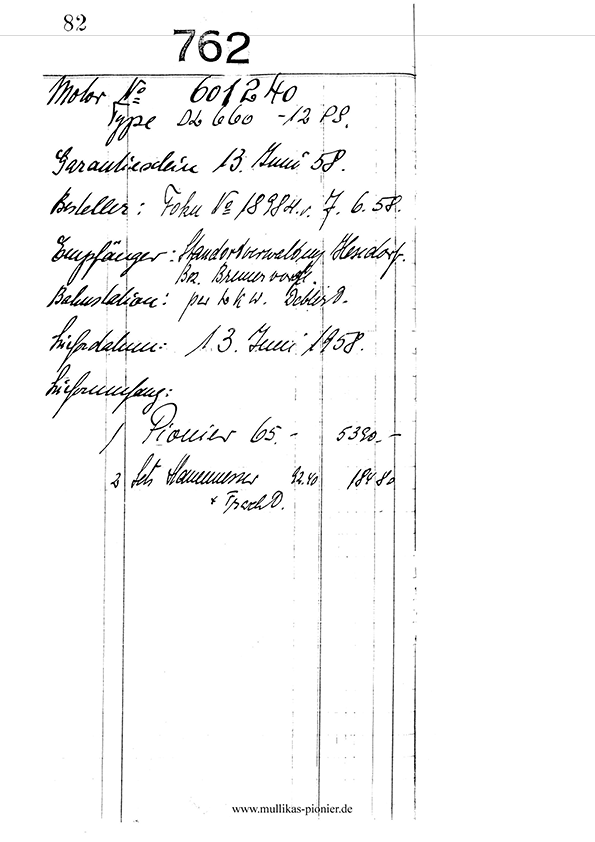 82
762
Motor No 601240
Type DL 660 - 12 PS.
Garantieschein 13. Juni 58.
Besteller: No 1898 7. 6. 58.
Empfänger: Standortverwaltung
Bez.
Bahnstation: per LKW.
Lieferdatum: 13. Juni 1958.
Lieferumfang:
1 Pionier 65.- 5390.-
2 92.40 184 80
www.mullikas-pionier.de